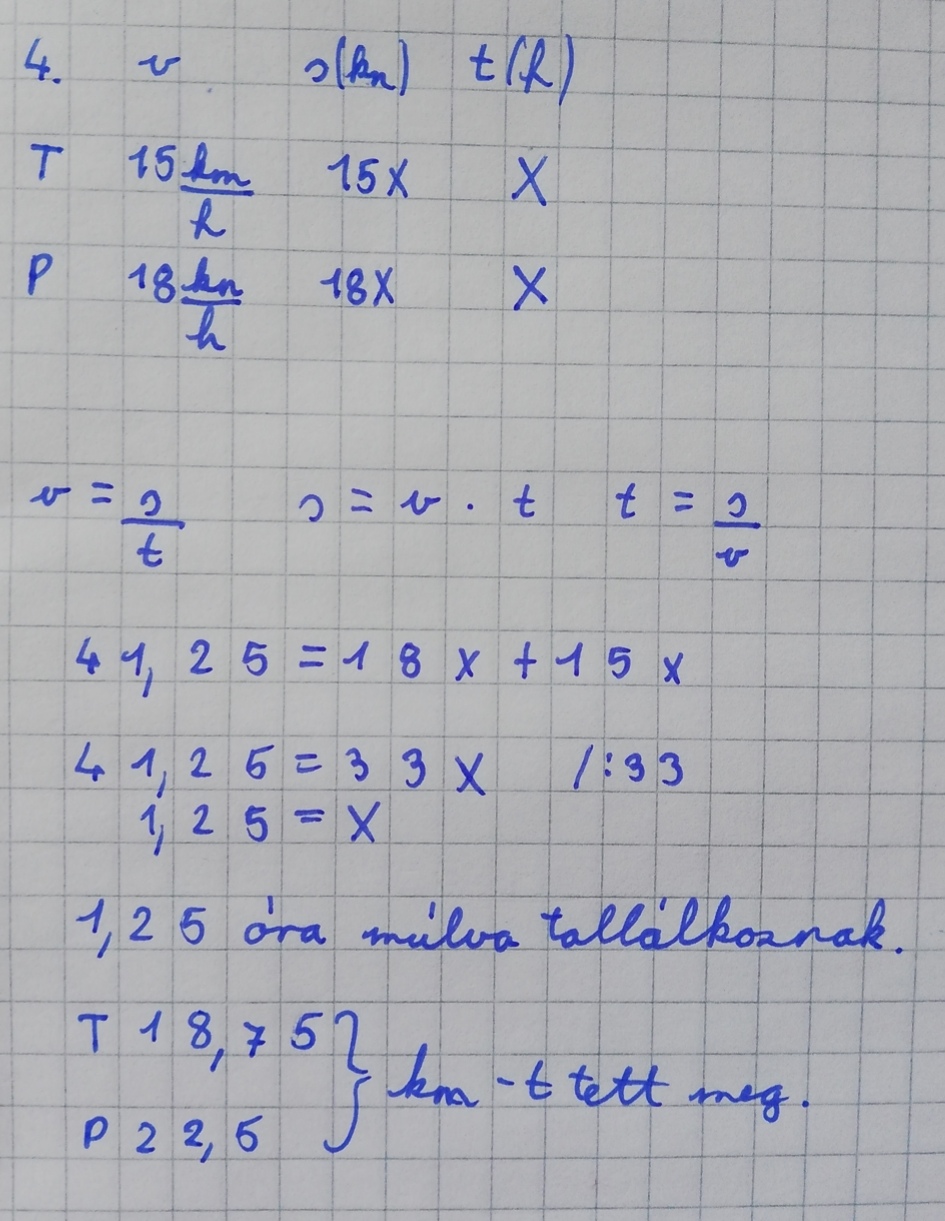 4. v s(km) t(h)
T 15 km/h 15x x
P 18 km/h 18x x
v = s/t s = v · t t = s/v
41,25 = 18x + 15x
41,25 = 33x /:33
1,25 = x
1,25 óra múlva tallálkoznak.
T 18,75 } km-t tett meg.
P 22,5